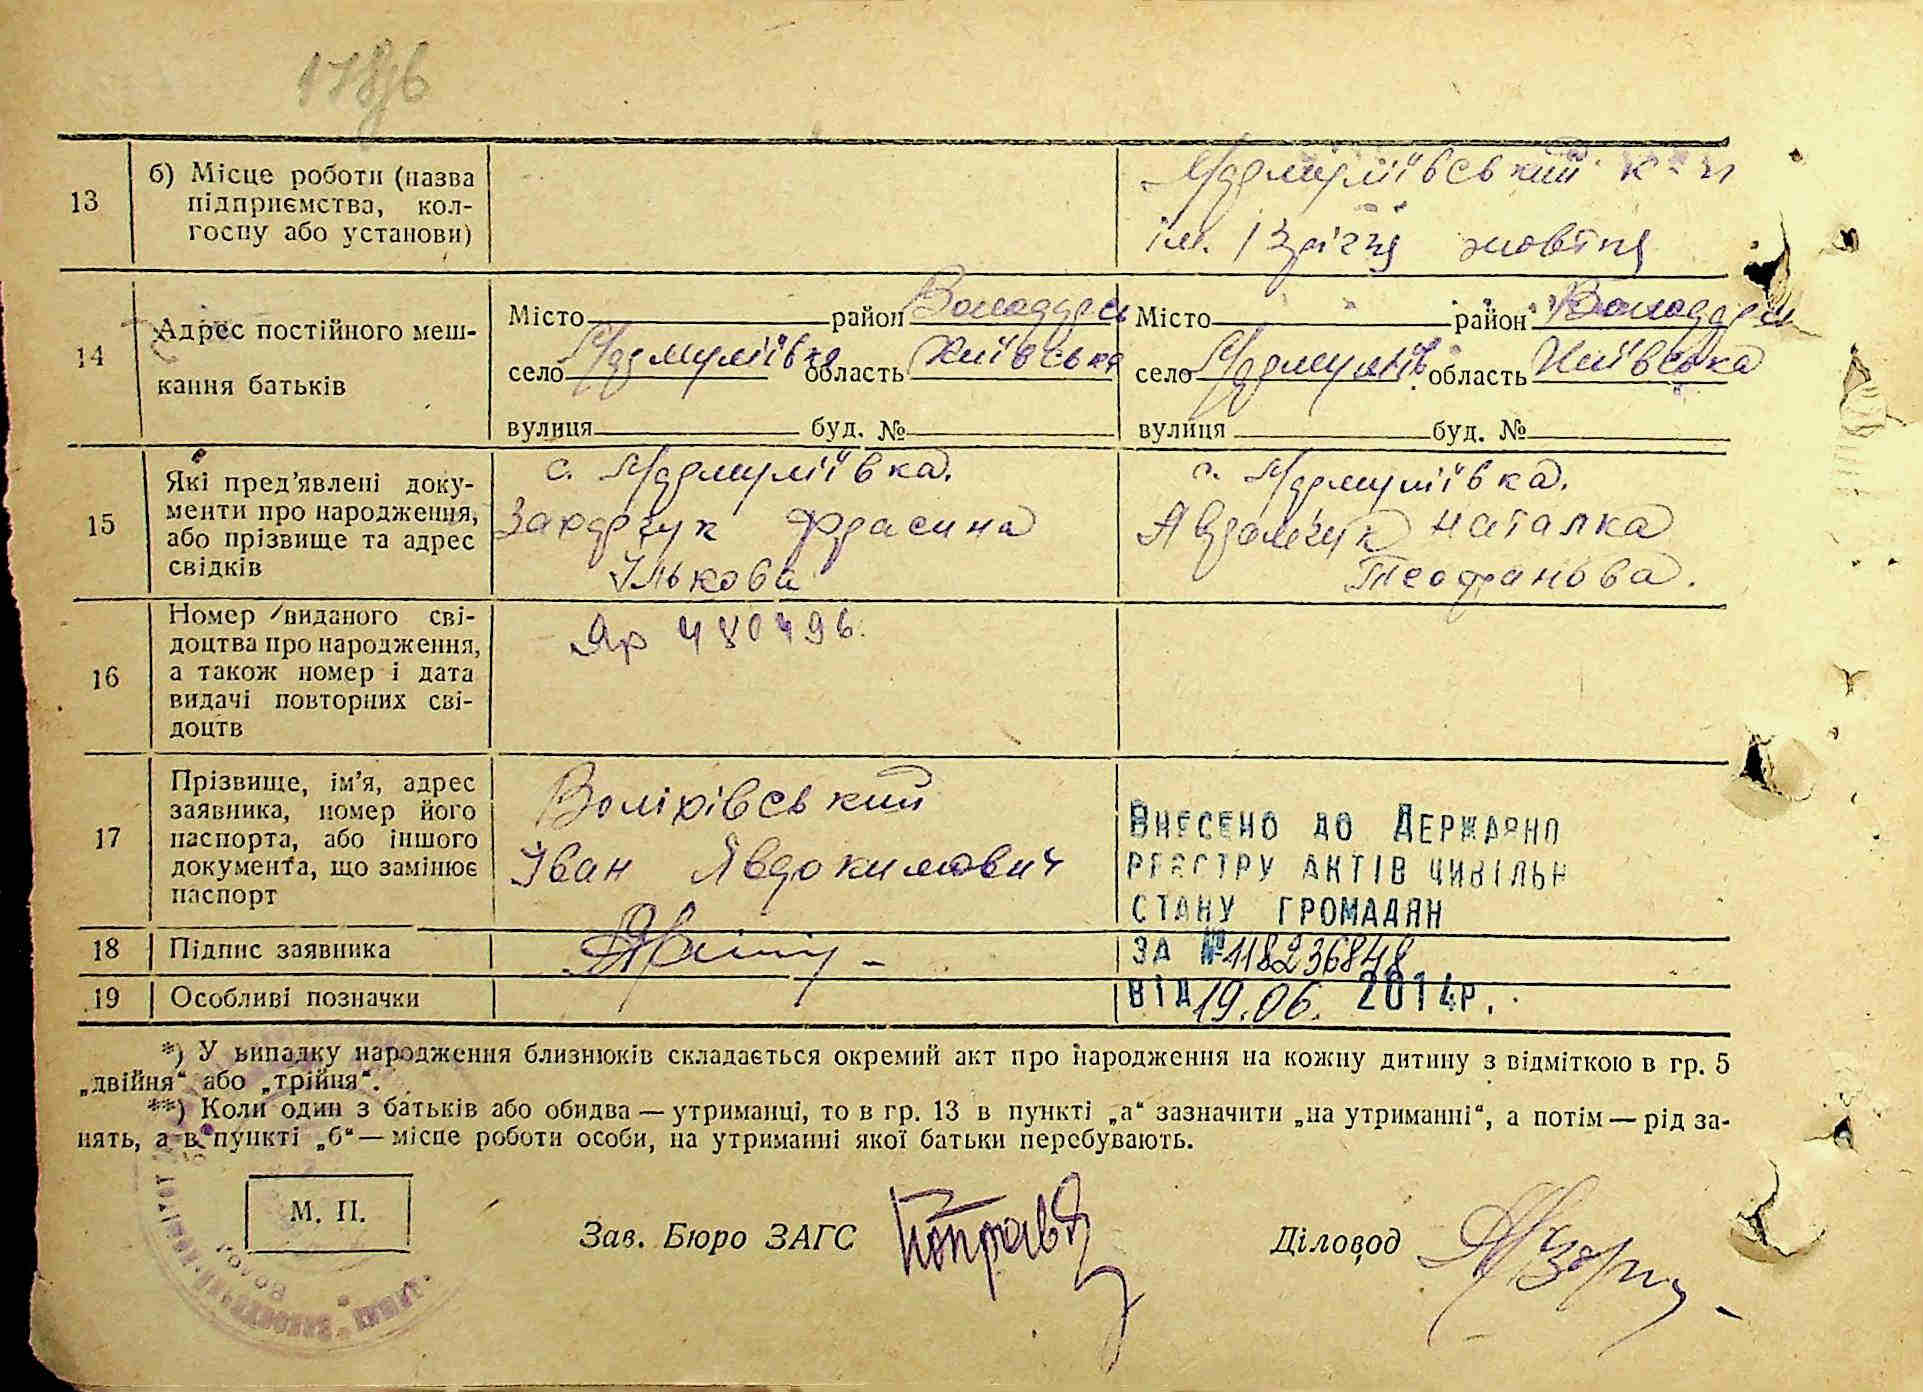 13
б) Місце роботи (назва
підприємства, кол-
госпу або установи)
Мармуліївський к-п
ім. 13 річчя жовтня
14
Адрес постійного меш-
кання батьків
Місто район Володарськ
село Мармуліївка область Київська
вулиця буд. №
Місто район Володарськ
село Мармуліїв область Київська
вулиця буд. №
15
Які пред’явлені доку-
менти про народження,
або прізвище та адрес
свідків
с. Мармуліївка.
Захарчук Фрасина
Ількова
с. Мармуліївка.
Наталка
Теофанова.
16
Номер виданого сві-
доцтва про народження,
а також номер і дата
видачі повторних сві-
доцтв
Яр 480496.
17
Прізвище, ім’я, адрес
заявника, номер його
паспорта, або іншого
документа, що замінює
паспорт
Воліхівський
Іван Явдокимович
ВНЕСЕНО ДО ДЕРЖАВНО
РЕЄСТРУ АКТІВ ЦИВІЛЬН
СТАНУ ГРОМАДЯН
ЗА № 118236848
ВІД 19.06. 2014р.
18
Підпис заявника
19
Особливі позначки
*) У випадку народження близнюків складається окремий акт про народження на кожну дитину з відміткою в гр. 5
„двійня“ або „трійня“.
**) Коли один з батьків або обидва — утриманці, то в гр. 13 в пункті „а“ зазначити „на утриманні“, а потім — рід за-
нять, а в пункті „б“ — місце роботи особи, на утриманні якої батьки перебувають.
М. П.
Зав. Бюро ЗАГС
Діловод